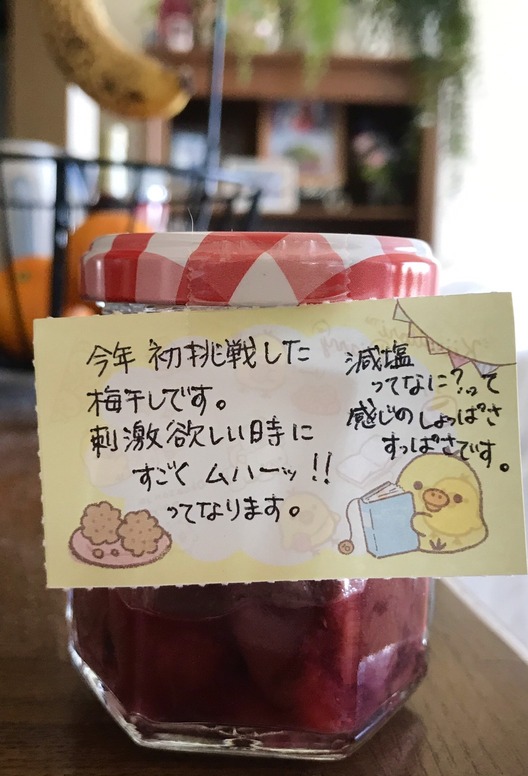 今年 初挑戦した
梅干しです。
刺激欲しい時に
すごく ムハーッ!!
ってなります。
減塩
ってなに?って
感じのしょっぱさ
すっぱさです。